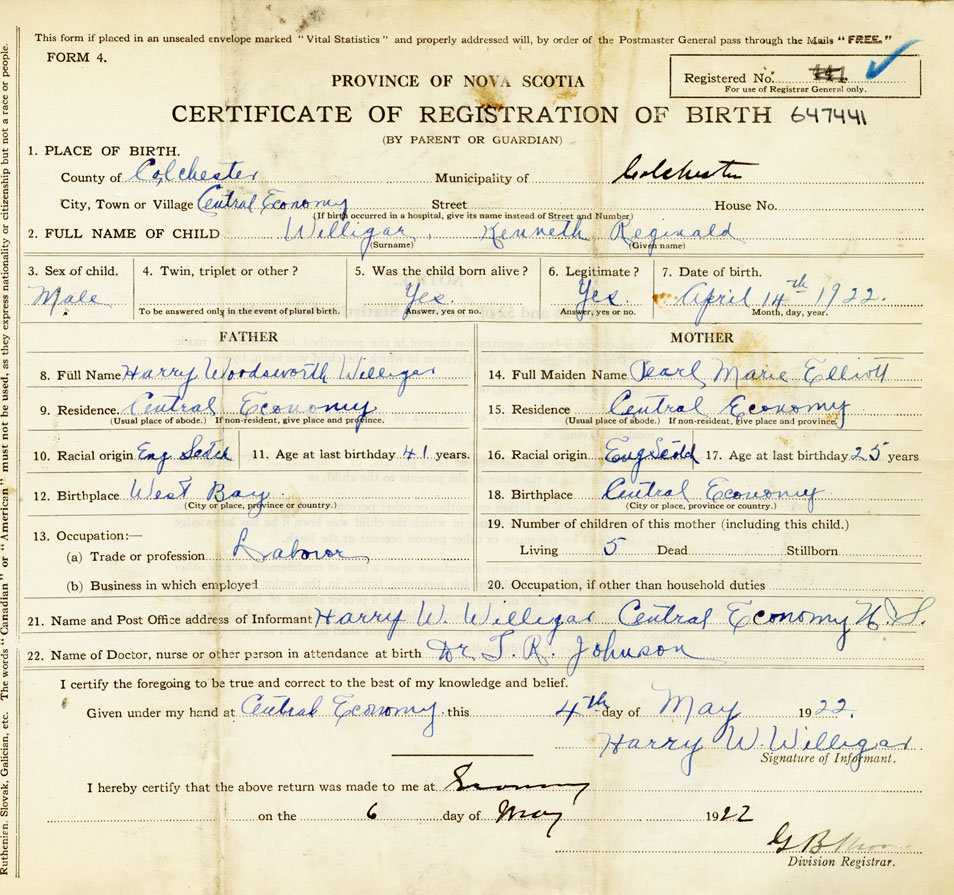 This form if placed in an unsealed envelope marked "Vital Statistics" and properly addressed will, by order of the Postmaster General pass through the Mails "FREE."
FORM 4.
PROVINCE OF NOVA SCOTIA
Registered No.
For use of Registrar General only.
CERTIFICATE OF REGISTRATION OF BIRTH 647441
(BY PARENT OR GUARDIAN)
1. PLACE OF BIRTH.
County of Colchester Municipality of Colchester
City, Town or Village Central Economy Street House No.
(If birth occurred in a hospital, give its name instead of Street and Number)
2. FULL NAME OF CHILD Willigar, Kenneth Reginald
(Surname) (Given name)
3. Sex of child. 4. Twin, triplet or other? 5. Was the child born alive? 6. Legitimate? 7. Date of birth.
Male Yes. Yes. April 14th 1922.
To be answered only in the event of plural birth. Answer, yes or no. Answer, yes or no. Month, day, year.
FATHER MOTHER
8. Full Name Harry Woodsworth Willigar 14. Full Maiden Name Pearl Marie Elliott
9. Residence. Central Economy 15. Residence Central Economy
(Usual place of abode.) If non-resident, give place and province. (Usual place of abode.) If non-resident, give place and province.
10. Racial origin Eng Scotch 11. Age at last birthday 41 years. 16. Racial origin Eng 17. Age at last birthday 25 years
12. Birthplace West Bay 18. Birthplace Central Economy
(City or place, province or country.) (City or place, province or country.)
13. Occupation:— 19. Number of children of this mother (including this child.)
(a) Trade or profession Labouor Living 5 Dead Stillborn
(b) Business in which employed 20. Occupation, if other than household duties
21. Name and Post Office address of Informant Harry W. Willigar Central Economy N.S.
22. Name of Doctor, nurse or other person in attendance at birth Dr. T. R. Johnson
I certify the foregoing to be true and correct to the best of my knowledge and belief.
Given under my hand at Central Economy. this 4th day of May 1922.
Harry W. Willigar
Signature of Informant.
I hereby certify that the above return was made to me at Economy
on the 6 day of May 1922
G B
Division Registrar.
Ruthenien, Slovak, Galician, etc. The words "Canadian" or "American" must not be used, as they express nationality or citizenship but not a race or people.